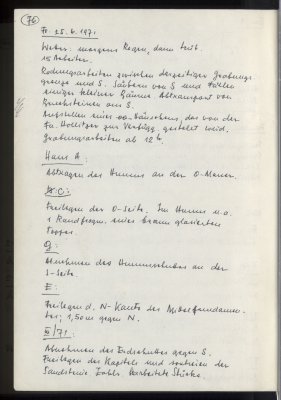 76
Fr. 25.6.1971
Wetter: morgens Regen, dann heit.
15 Arbeiter.
Rodungsarbeiten zwischen derzeitiger Grabungs-
grenze und S. Säubern von S und Fällen
einiger kleiner Bäume. Abtransport von
Bruchsteinen aus S.
Aufstellen eines Häuschens, das von der
Fa. Hollitzer zur Verfügg. gestellt wird.
Grabungsarbeiten ab 12 h.
Haus A:
Abtragen des Humus an der O-Mauer.
C:
Freilegen der O-Seite. Im Humus u.a.
1 Randfragm. eines braun glasierten
Topfes.
D:
Abnehmen des Humusschuttes an der
S-Seite.
E:
Freilegen d. N-Kante des Altarfundamen-
tes; 1,50 m gegen N.
III/71:
Abnehmen des Erdschuttes gegen S.
Freilegen des Kapitels und weiterer der
Sandsteine. Zahlr. bearbeitete Stücke.